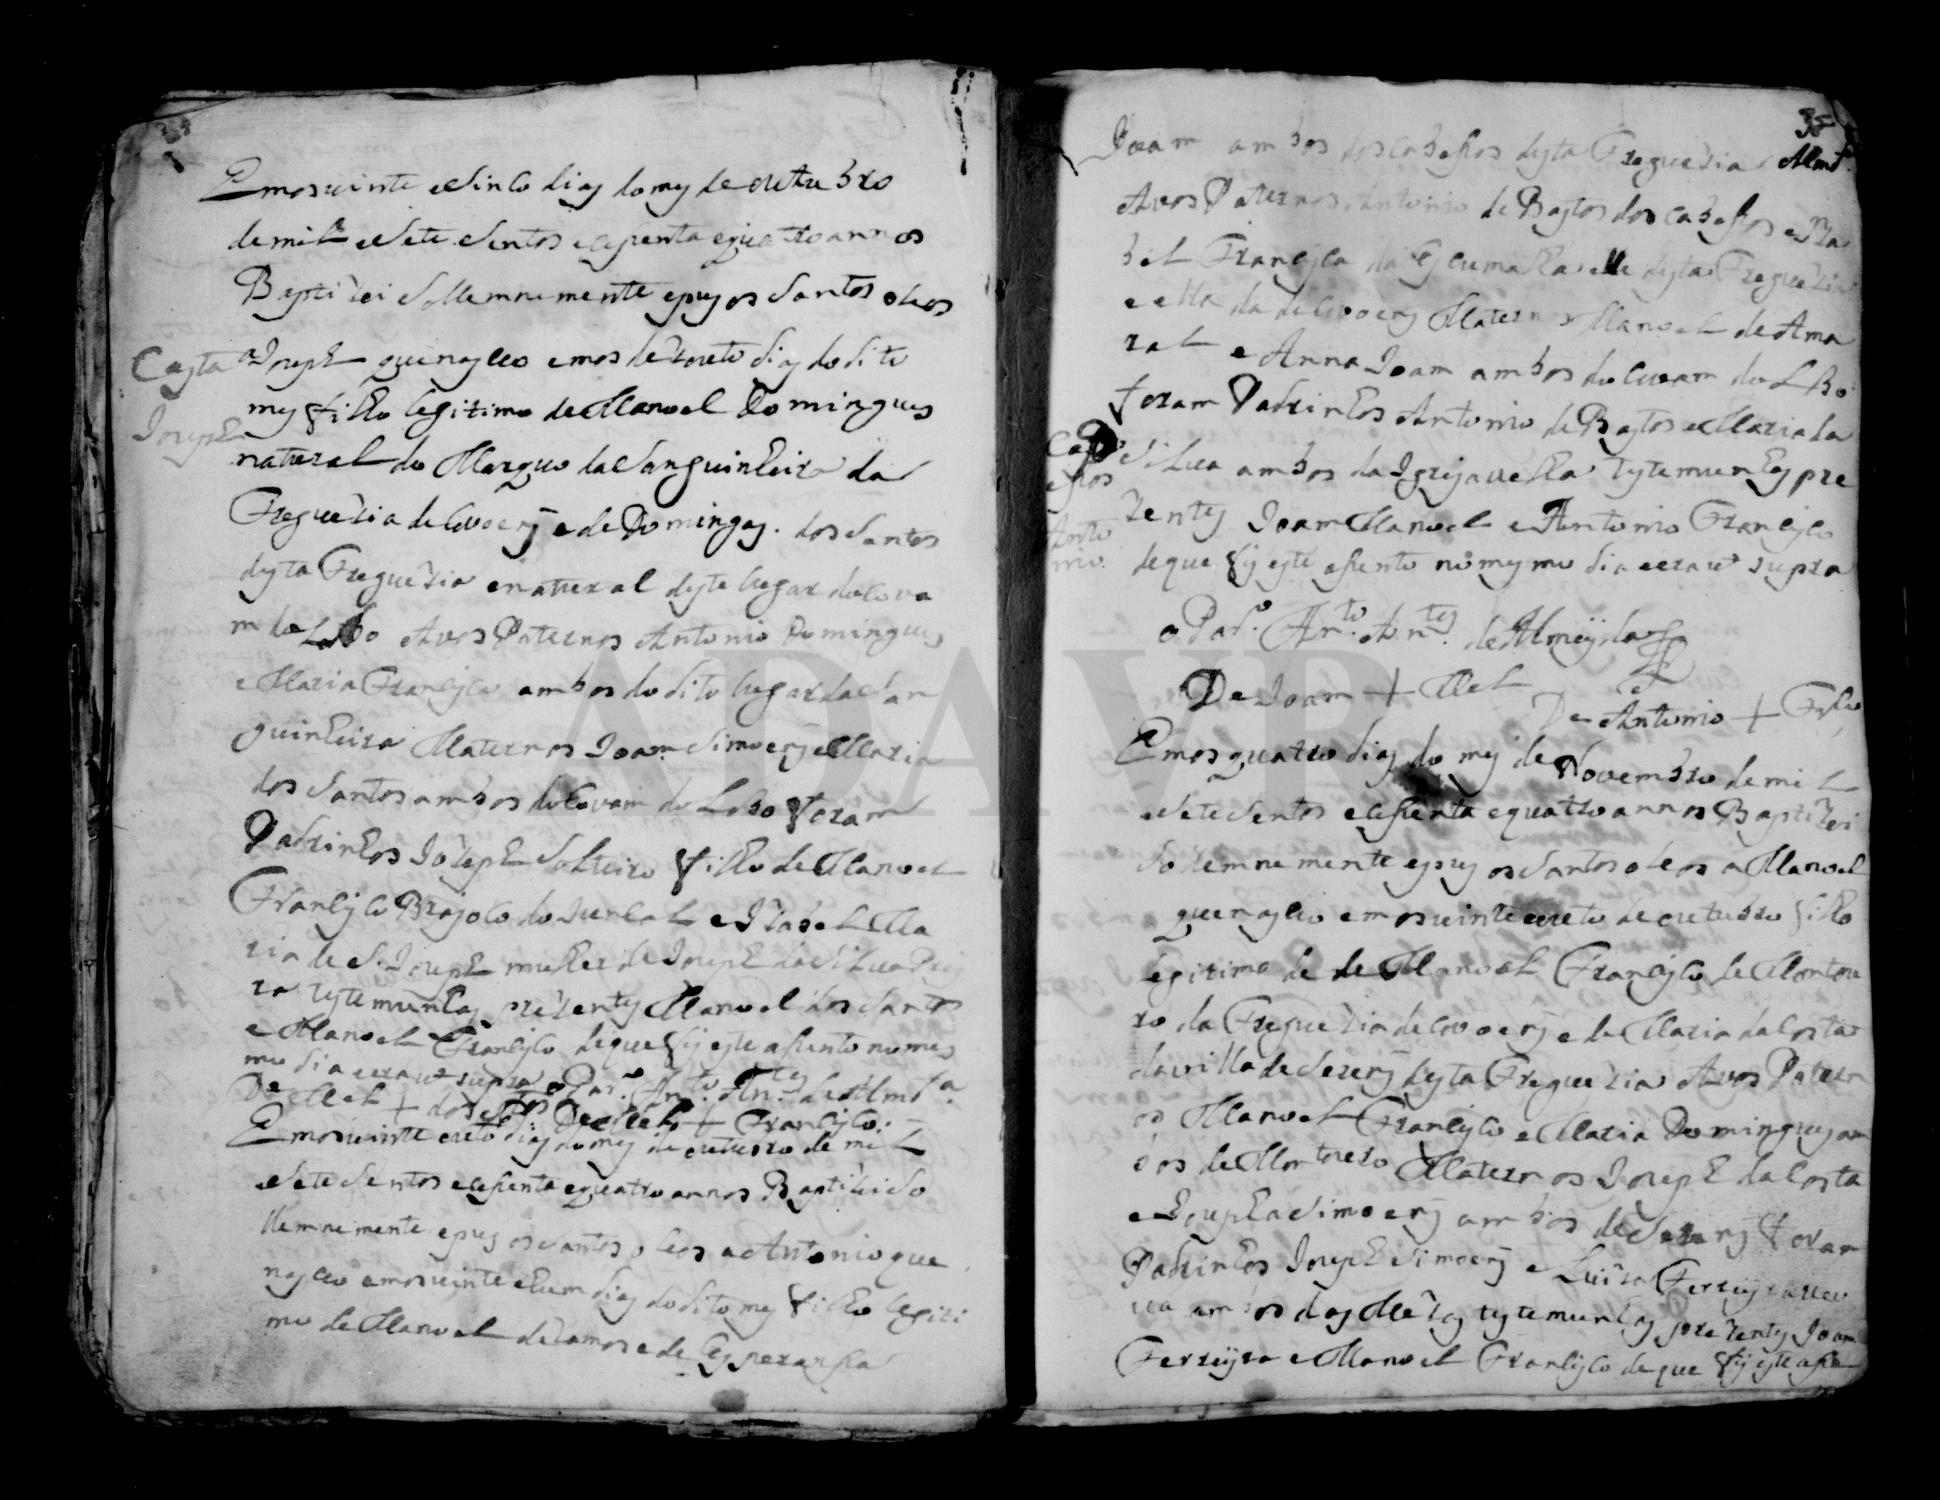 Emos vinte e sinco dias do mes de outubro
de mil e sete sentos e cesenta e quatro annos
Baptizei sollemnemente e pus os santos oleos
Casta
a Joseph que nasceo em os dezoito dias do dito
mes filho legitimo de Manoel Domingues
Joseph
natural do Marquo da Sanguinheira da
Freguezia de Covoens e de Domingas dos Santos
desta Freguezia e natural deste lugar do Cova
m do Lobo Avos Paternos Antonio Domingues
e Maria Francisca ambos do dito lugar da San
guinheira Maternos Joam Simoens e Maria
dos Santos ambos do Covam do Lobo foram
Padrinhos Jozeph solteiro filho de Manoel
Francisco do Juncal e Izabel Ma
ria de S. Joseph mulher de Joseph da Silva
testemunhas prezentes Manoel dos Santos
e Manoel Francisco de que fis este asento no mes
mo dia e era ut supra o Pad.e An.to An.tes de Alm.da
De M.el + dos S.tos De M.el + Francisco
Emos vinte e oito dias do mes de outubro de mil
e sete sentos e cesenta e quatro annos Baptizei so
llemnemente e pus os santos oleos a Antonio que
nasceo em os vinte e hum dias do dito mes filho legiti
mo de Manoel de Ramos e de Esperansa
35
Joam ambos dos Cabesos desta Freguezia
Alm.da
Avos Paternos Antonio de Bastos dos Cabesos e Iza
bel Francisca da elle desta Freguezia
e ella da de Covoens Maternos Manoel de Ama
ral e Anna Joam ambos do Covam do Lobo
foram Padrinhos Antonio de Bastos e Maria da
Cab
esos
Silva ambos da Igreja velha testemunhas pre
Anto
nio
zentes Joam Manoel e Antonio Francisco
de que fis este asento no mesmo dia e era ut supra
o Pad.e An.to An.tes de Almeyda
De Joam + M.el De Antonio + Fr.co
Emos quatro dias do mes de Novembro de mil
e sete sentos e cesenta e quatro annos Baptizei
sollemnemente e pus os santos oleos a Manoel
que nasceo em os vinte e oito de outubro filho
legitimo de de Manoel Francisco de Montou
ro da Freguezia de Covoens e de Maria da Costa
da villa de Sozens desta Freguezia Avos Patern
os Manoel Francisco e Maria Domingues am
bos de Montouro Maternos Joseph da Costa
e Josepha Simoens ambos de foram
Padrinhos Joseph Simoens e Luiza Ferreyra viu
va ambos das Mezas testemunhas prezentes Joam
Ferreyra e Manoel Francisco de que fis este asen